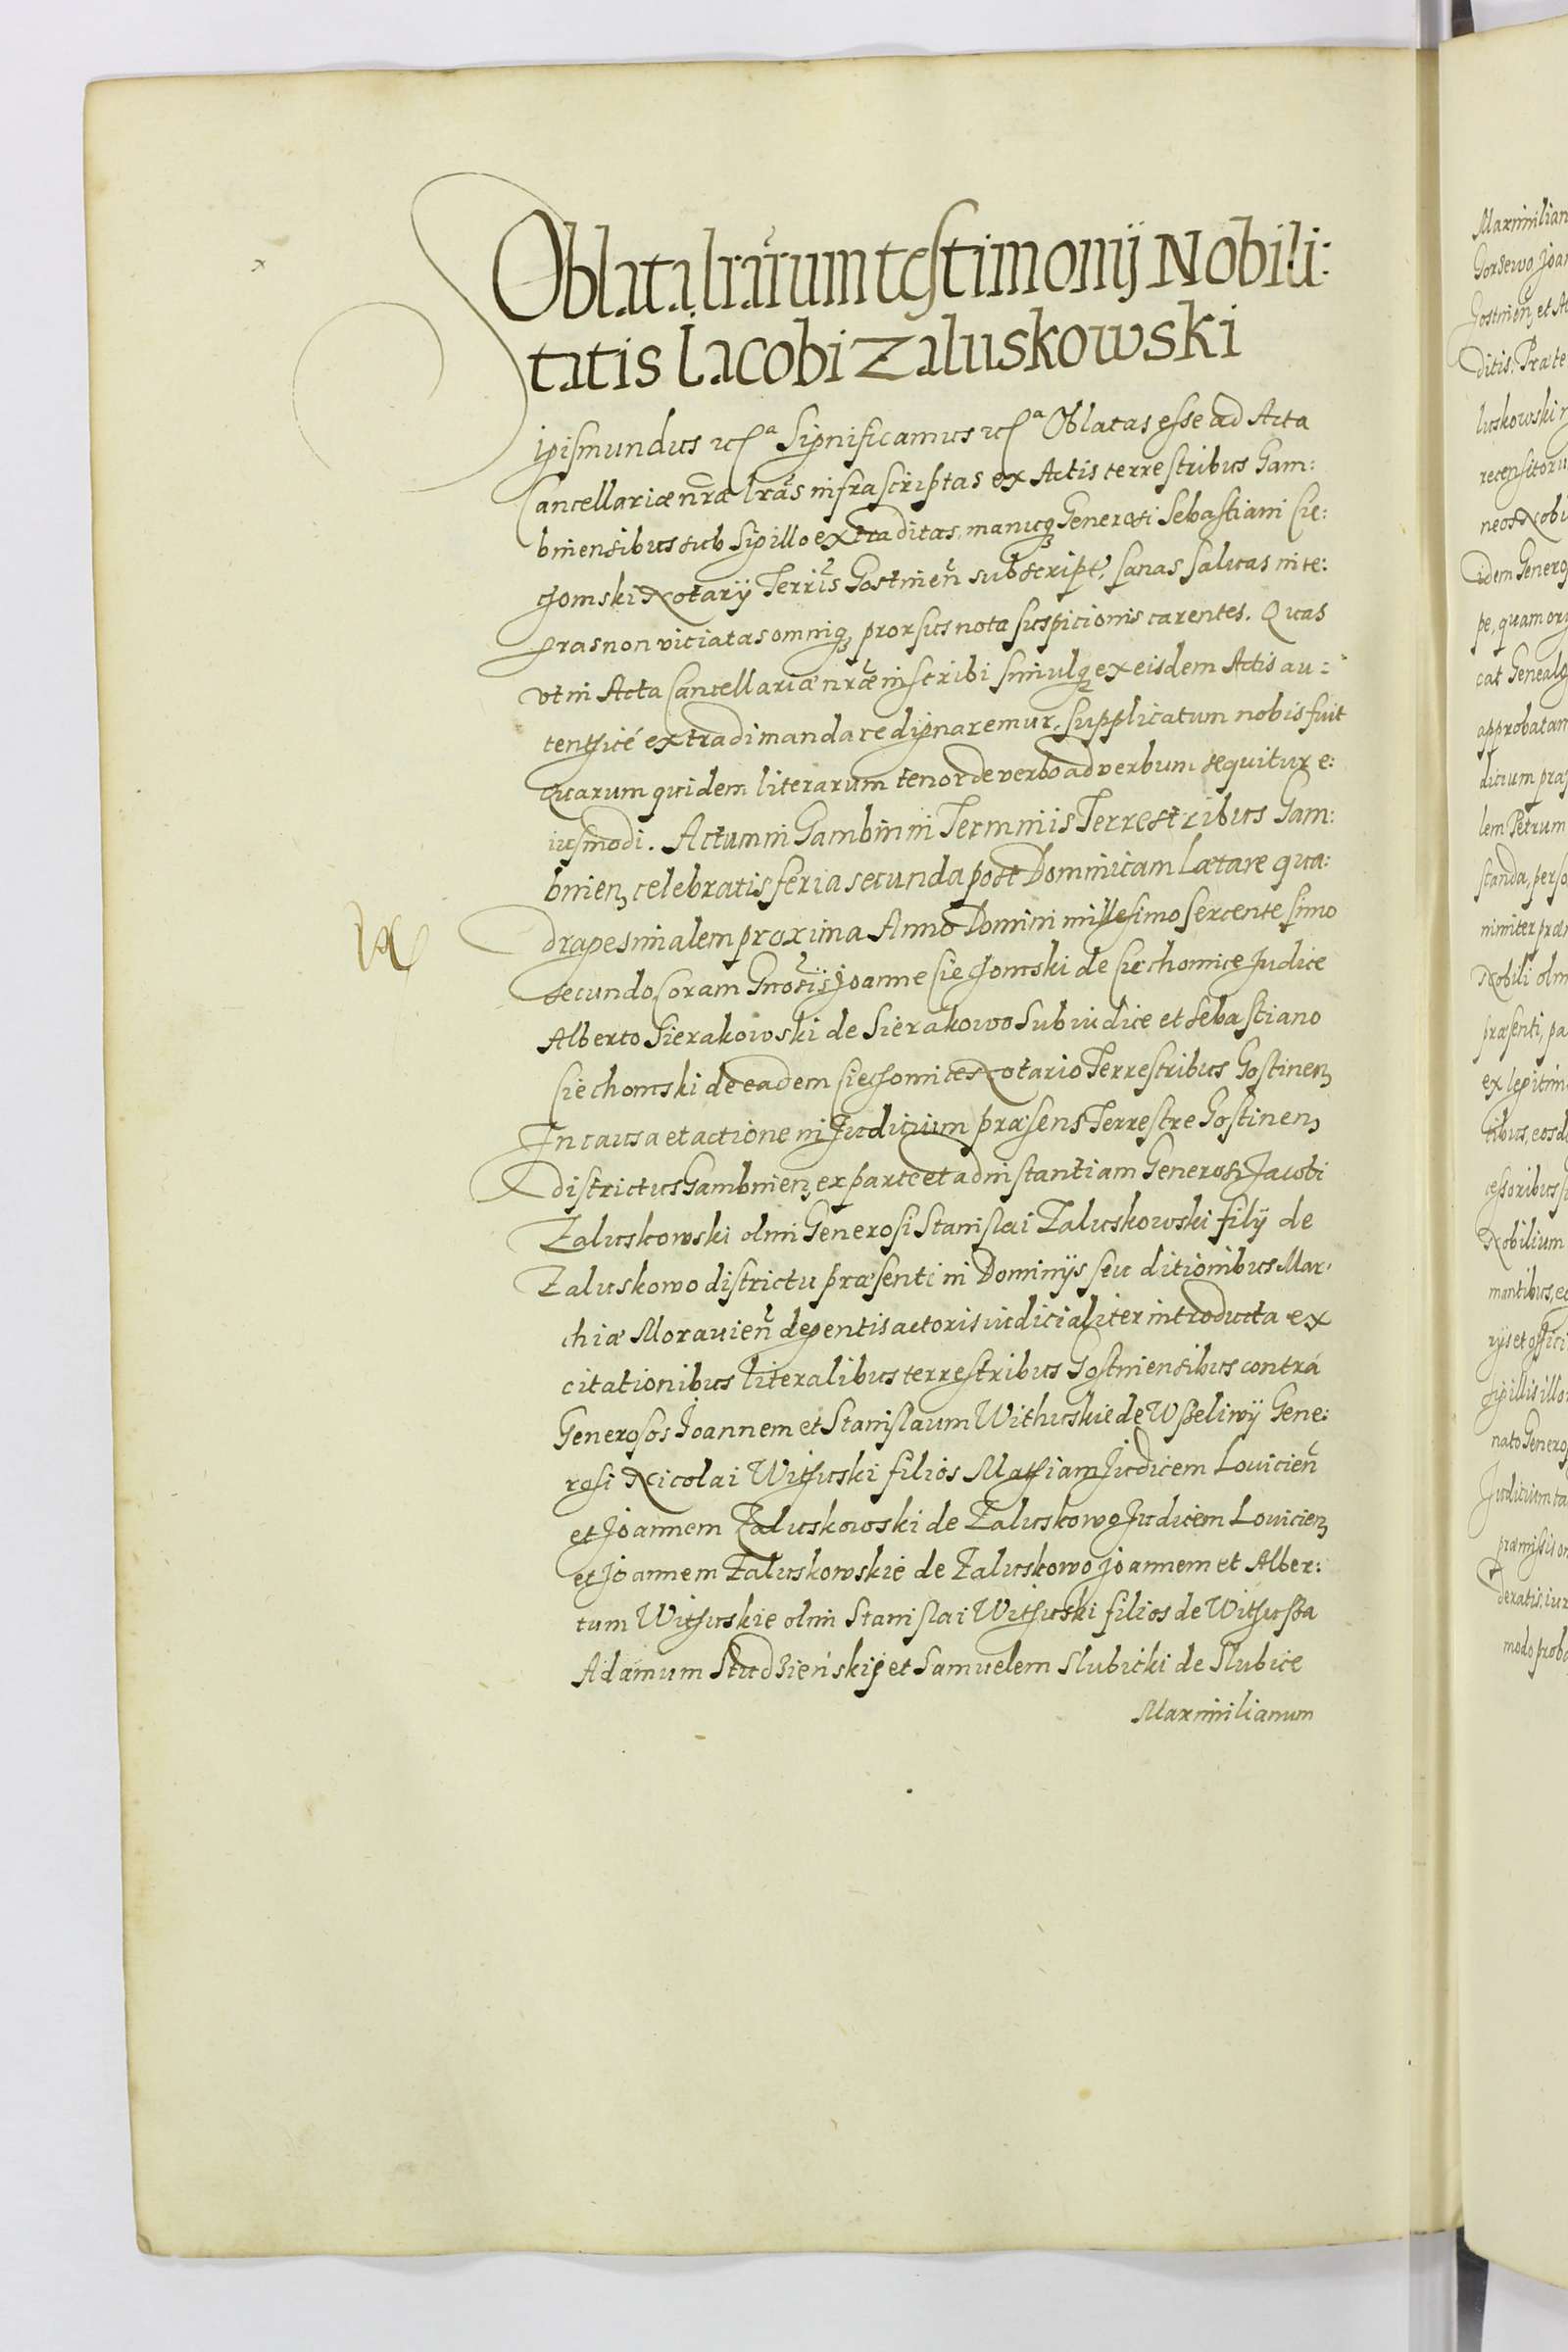 Oblata lrãrum testimonij Nobili:
tatis Iacobi Zaluskowski
igismundus etc^a Significamus etc^a Oblatas esse ad Acta
Cancellariæ nrǣ lrãs infrascriptas ex Actis terrestribus Gam:
binensibus sub Sigillo extraditas, manuq₃ Generosi Sebastiani Cie:
chomski Notarij Terrĩs Gostineñ subscript', sanas saluas inte:
gras non viciatas omniq₃ prorsus nota suspicionis carentes. Quas
vt in Acta Cancellariæ nrǣ inscribi simulq₃ ex eisdem Actis au:
tenthicé extradi mandare dignaremur, supplicatum nobis fuit
Quarum quidem literarum tenor de verbo ad verbum sequitur e:
iusmodi. Actum in Gambin in Terminis Terrestribus Gam:
binien₃ celebratis feria secunda post Dominicam Lætare qua:
dragesimalem proxima Anno Domini millesimo sexcentesimo
secundo Coram Gnosĩs Joanne Ciechomski de Ciechomice Judice
Alberto Sierakowski de Sierakowo Subiudice et Sebastiano
Ciechomski de eadem Ciechomice Notario Terrestribus Gostinen₃
In causa et actione in Judicium præsens Terrestre Gostinen₃
districtus Gambinien₃ ex parte et ad instantiam Generosi Jacobi
Zaluskowski olim Generosi Stanislai Zaluskowski filij de
Zaluskowo districtu præsenti in Dominijs seu ditionibus Mar:
chiæ Moravieñ degentis actoris iudicialiter introducta ex
citationibus literalibus terrestribus Gostiniensibus contrá
Generosos Joannem et Stanislaum Withuskie de Wßeliwÿ Gene:
rosi Nicolai Withuski filios Mathiam Judicem Louicieñ
et Joannem Zaluskowski de Zaluskowo Judicem Louicien₃
et Joannem Zaluskowskie de Zaluskowo Joannem et Alber:
tum Withuskie olim Stanislai Withuski filios de Withußa
Adamum Studzieński et Samuelem Slubicki de Slubice
Maximilianum
Maximilian
Gostinen₃ et
ditis. Præte
luskowski
recensitoru
idem Genero
pe, quam
cat Genealo
approbatam
dicium
lem Petrum
standa, perso
Nobili olim
præsenti, pa
ex legitim
tibus, eosd
Nobilium
mantibus,
nato Genero
Judicium
præmissis
deratis, iur
modo proba